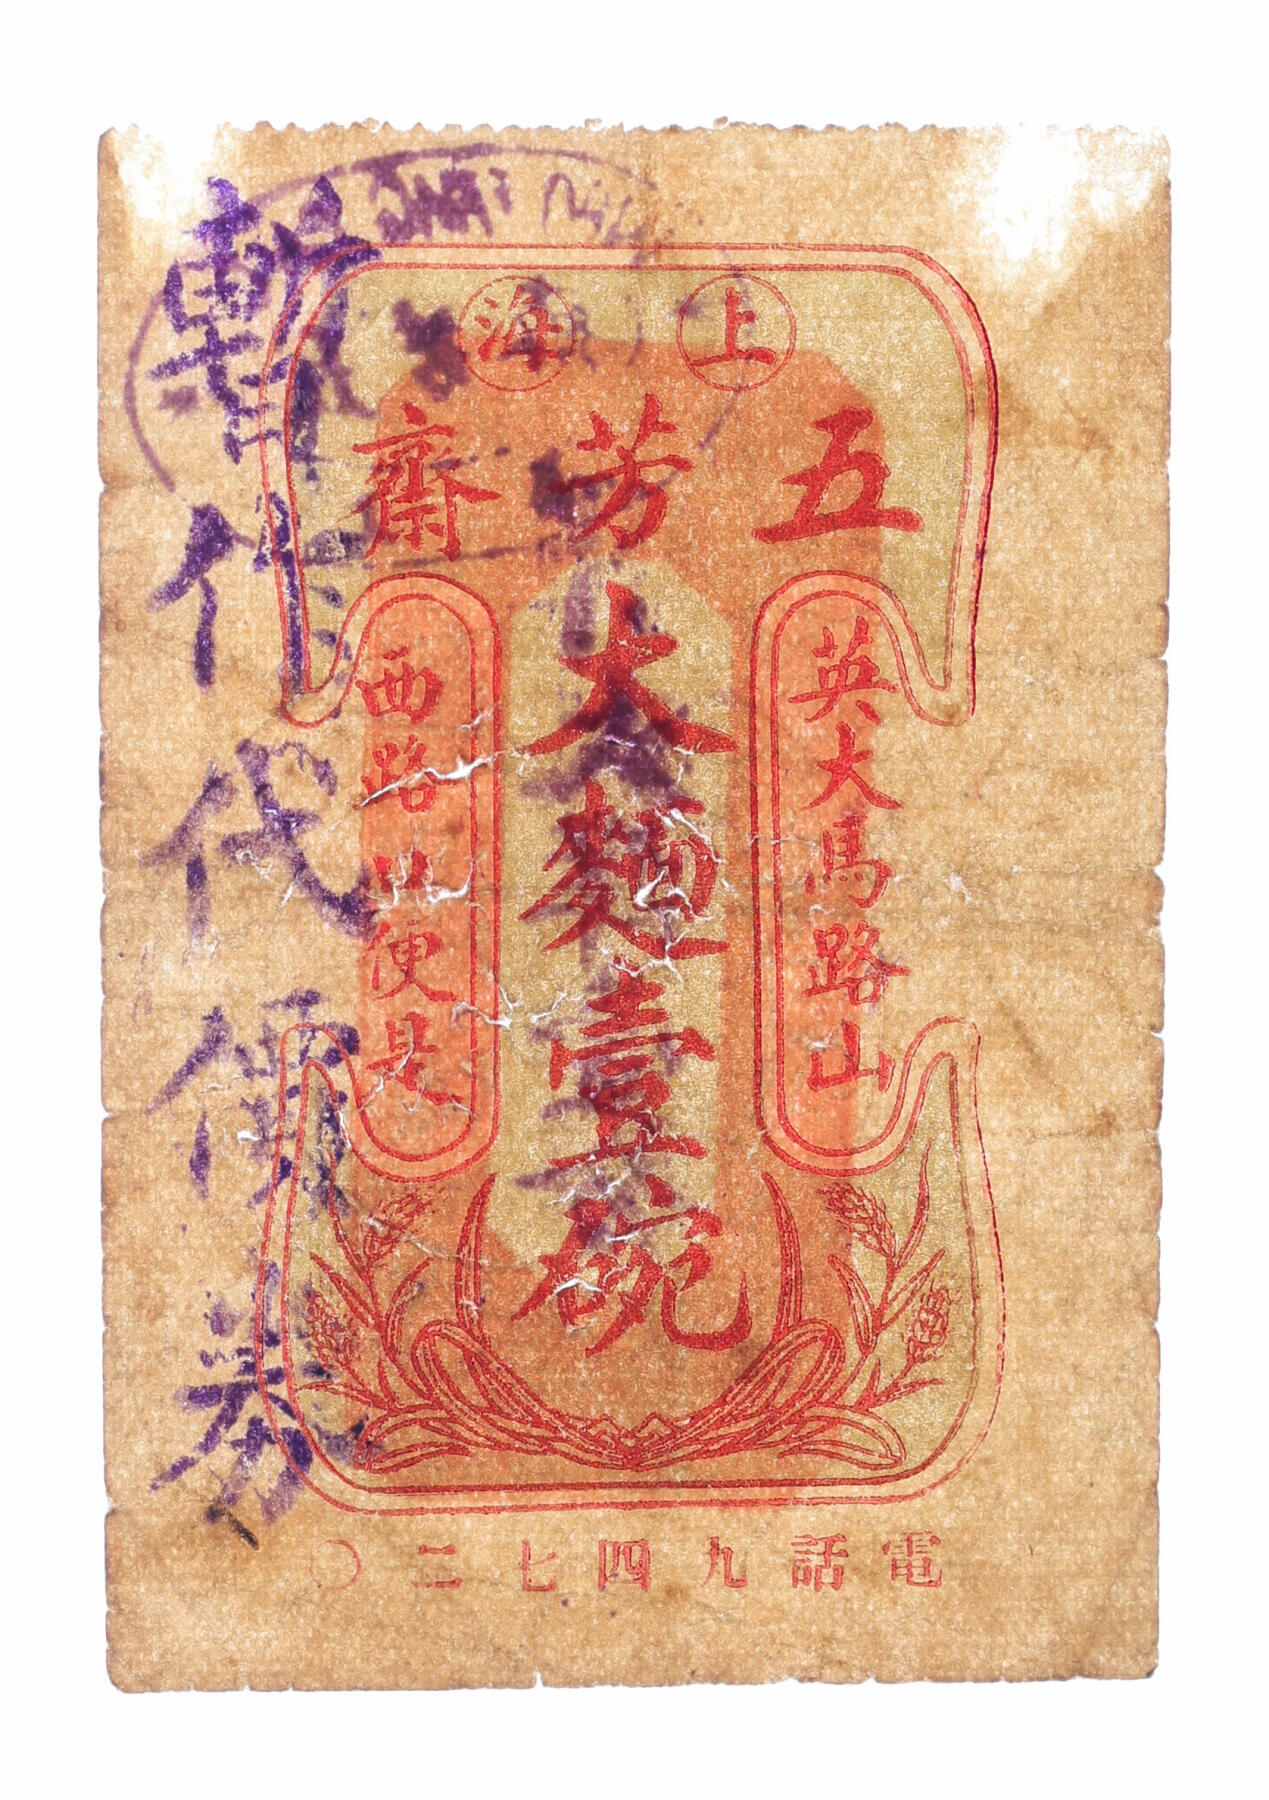 上海
五芳齋
英大馬路山
大麵壹碗
西路口便是
電話九四七二〇
暫作代價券